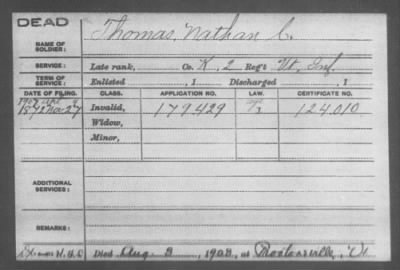 DEAD
NAME OF SOLDIER: Thomas, Nathan C.
SERVICE: Late rank, Co. K, 2 Reg't Vt. Inf.
TERM OF SERVICE: Enlisted , 1 Discharged , 1
DATE OF FILING. CLASS. APPLICATION NO. LAW. CERTIFICATE NO.
1872 Nov 27 Invalid, 179.429 124.010
Widow,
Minor,
ADDITIONAL SERVICES:
REMARKS:
Died Aug. 8, 1908, at Vt